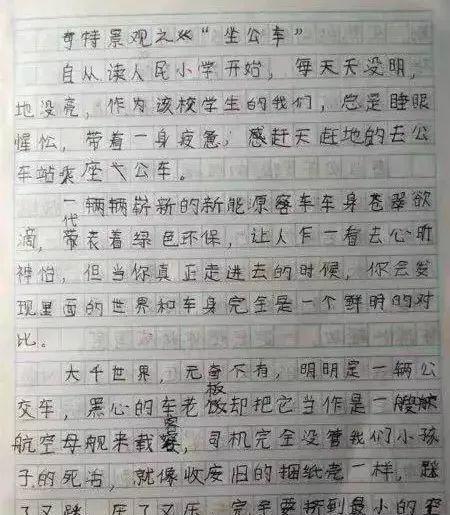 奇特景观之 “坐公车”
自从读人民小学开始，每天天没明，
地没亮，作为该校学生的我们，总是睡眼
惺忪，带着一身疲惫，感赶天赶地的去公
车站乘座公车。
一辆辆崭新的新能源客车车身苍翠欲
滴，代表着绿色环保，让人乍一看去心旷
神怡，但当你真正走进去的时候，你会发
现里面的世界和车身完全是一个鲜明的对
比。
大千世界，无奇不有，明明是一辆公
交车，黑心的车老板却把它当作是一艘
航空母舰来载客，司机完全没管我们小孩
子的死活，就像收废旧的捆纸壳一样，踩
了又踩，压了又压，完全要挤到最小的空